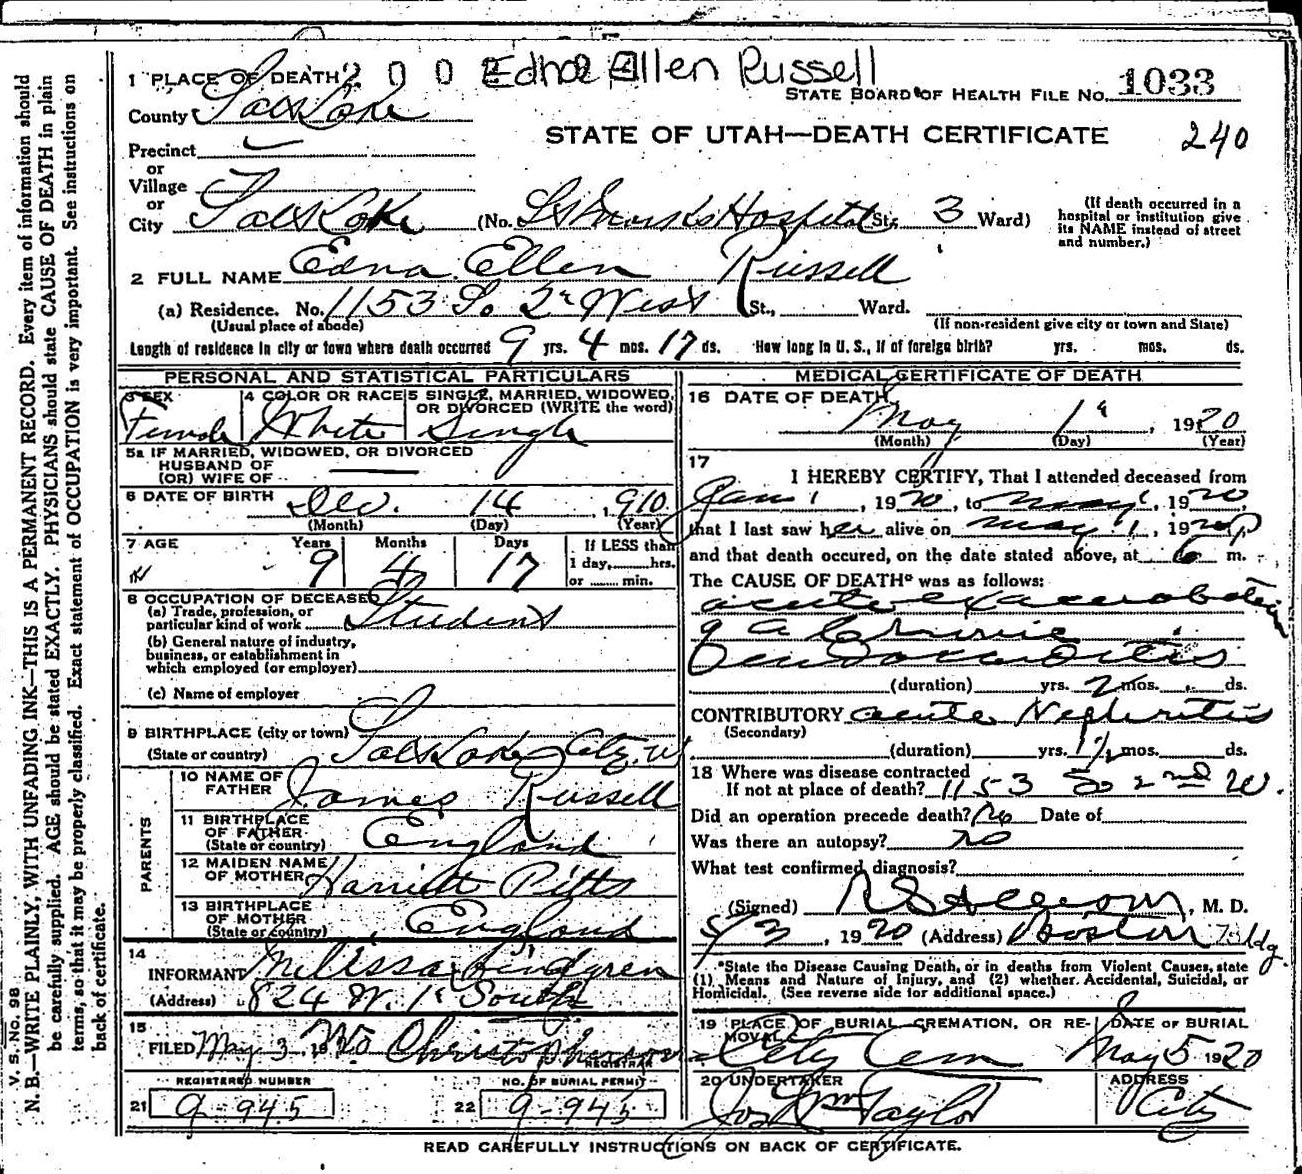 200 Edna Ellen Russell
1 PLACE OF DEATH
STATE BOARD OF HEALTH FILE No. 1033
County Salt Lake
STATE OF UTAH—DEATH CERTIFICATE
240
Precinct
or
Village
or
City Salt Lake (No. St Marks Hospital St., 3 Ward)
(If death occurred in a
hospital or institution give
its NAME instead of street
and number.)
2 FULL NAME Edna Ellen Russell
(a) Residence. No. 1153 So 2nd West St., Ward.
(Usual place of abode)
(If non-resident give city or town and State)
Length of residence in city or town where death occurred 9 yrs. 4 mos. 17 ds. How long in U. S., if of foreign birth? yrs. mos. ds.
PERSONAL AND STATISTICAL PARTICULARS
3 SEX Female
4 COLOR OR RACE White
5 SINGLE, MARRIED, WIDOWED,
OR DIVORCED (WRITE the word)
Single
5a IF MARRIED, WIDOWED, OR DIVORCED
HUSBAND OF
(OR) WIFE OF
6 DATE OF BIRTH Dec. 14, 1910
(Month) (Day) (Year)
7 AGE Years Months Days
9 4 17
If LESS than
1 day, hrs.
or min.
8 OCCUPATION OF DECEASED
(a) Trade, profession, or
particular kind of work Student
(b) General nature of industry,
business, or establishment in
which employed (or employer)
(c) Name of employer
9 BIRTHPLACE (city or town)
(State or country) Salt Lake City, U
PARENTS
10 NAME OF
FATHER James Russell
11 BIRTHPLACE
OF FATHER
(State or country) England
12 MAIDEN NAME
OF MOTHER Harriett Pitts
13 BIRTHPLACE
OF MOTHER
(State or country) England
14
INFORMANT Melissa Lindgren
(Address) 824 W. 1st South
15
FILED May 3 1920 Christopherson
REGISTRAR
REGISTERED NUMBER
21 9-945
NO. OF BURIAL PERMIT
22 9-945
MEDICAL CERTIFICATE OF DEATH
16 DATE OF DEATH
May 1st, 1920
(Month) (Day) (Year)
17
I HEREBY CERTIFY, That I attended deceased from
Jan 1, 1920, to May 1, 1920,
that I last saw her alive on May 1, 1920
and that death occured, on the date stated above, at 6 P m.
The CAUSE OF DEATH* was as follows:
acute exacerbation
of a Chronic
Endocarditis
(duration) yrs. 2 mos. ds.
CONTRIBUTORY acute Nephritis
(Secondary)
(duration) yrs. 1½ mos. ds.
18 Where was disease contracted
If not at place of death? 1153 So 2nd W.
Did an operation precede death? No Date of
Was there an autopsy? no
What test confirmed diagnosis?
(Signed) , M. D.
5/3, 1920 (Address) Boston Bldg.
*State the Disease Causing Death, or in deaths from Violent Causes, state
(1) Means and Nature of Injury, and (2) whether Accidental, Suicidal, or
Homicidal. (See reverse side for additional space.)
19 PLACE OF BURIAL, CREMATION, OR RE-
MOVAL City Cem
DATE OF BURIAL
May 5 1920
20 UNDERTAKER
Jos Wm Taylor
ADDRESS
City
READ CAREFULLY INSTRUCTIONS ON BACK OF CERTIFICATE.
V. S. No. 98
N. B.—WRITE PLAINLY, WITH UNFADING INK—THIS IS A PERMANENT RECORD. Every item of information should
be carefully supplied. AGE should be stated EXACTLY. PHYSICIANS should state CAUSE OF DEATH in plain
terms, so that it may be properly classified. Exact statement of OCCUPATION is very important. See instructions on
back of certificate.